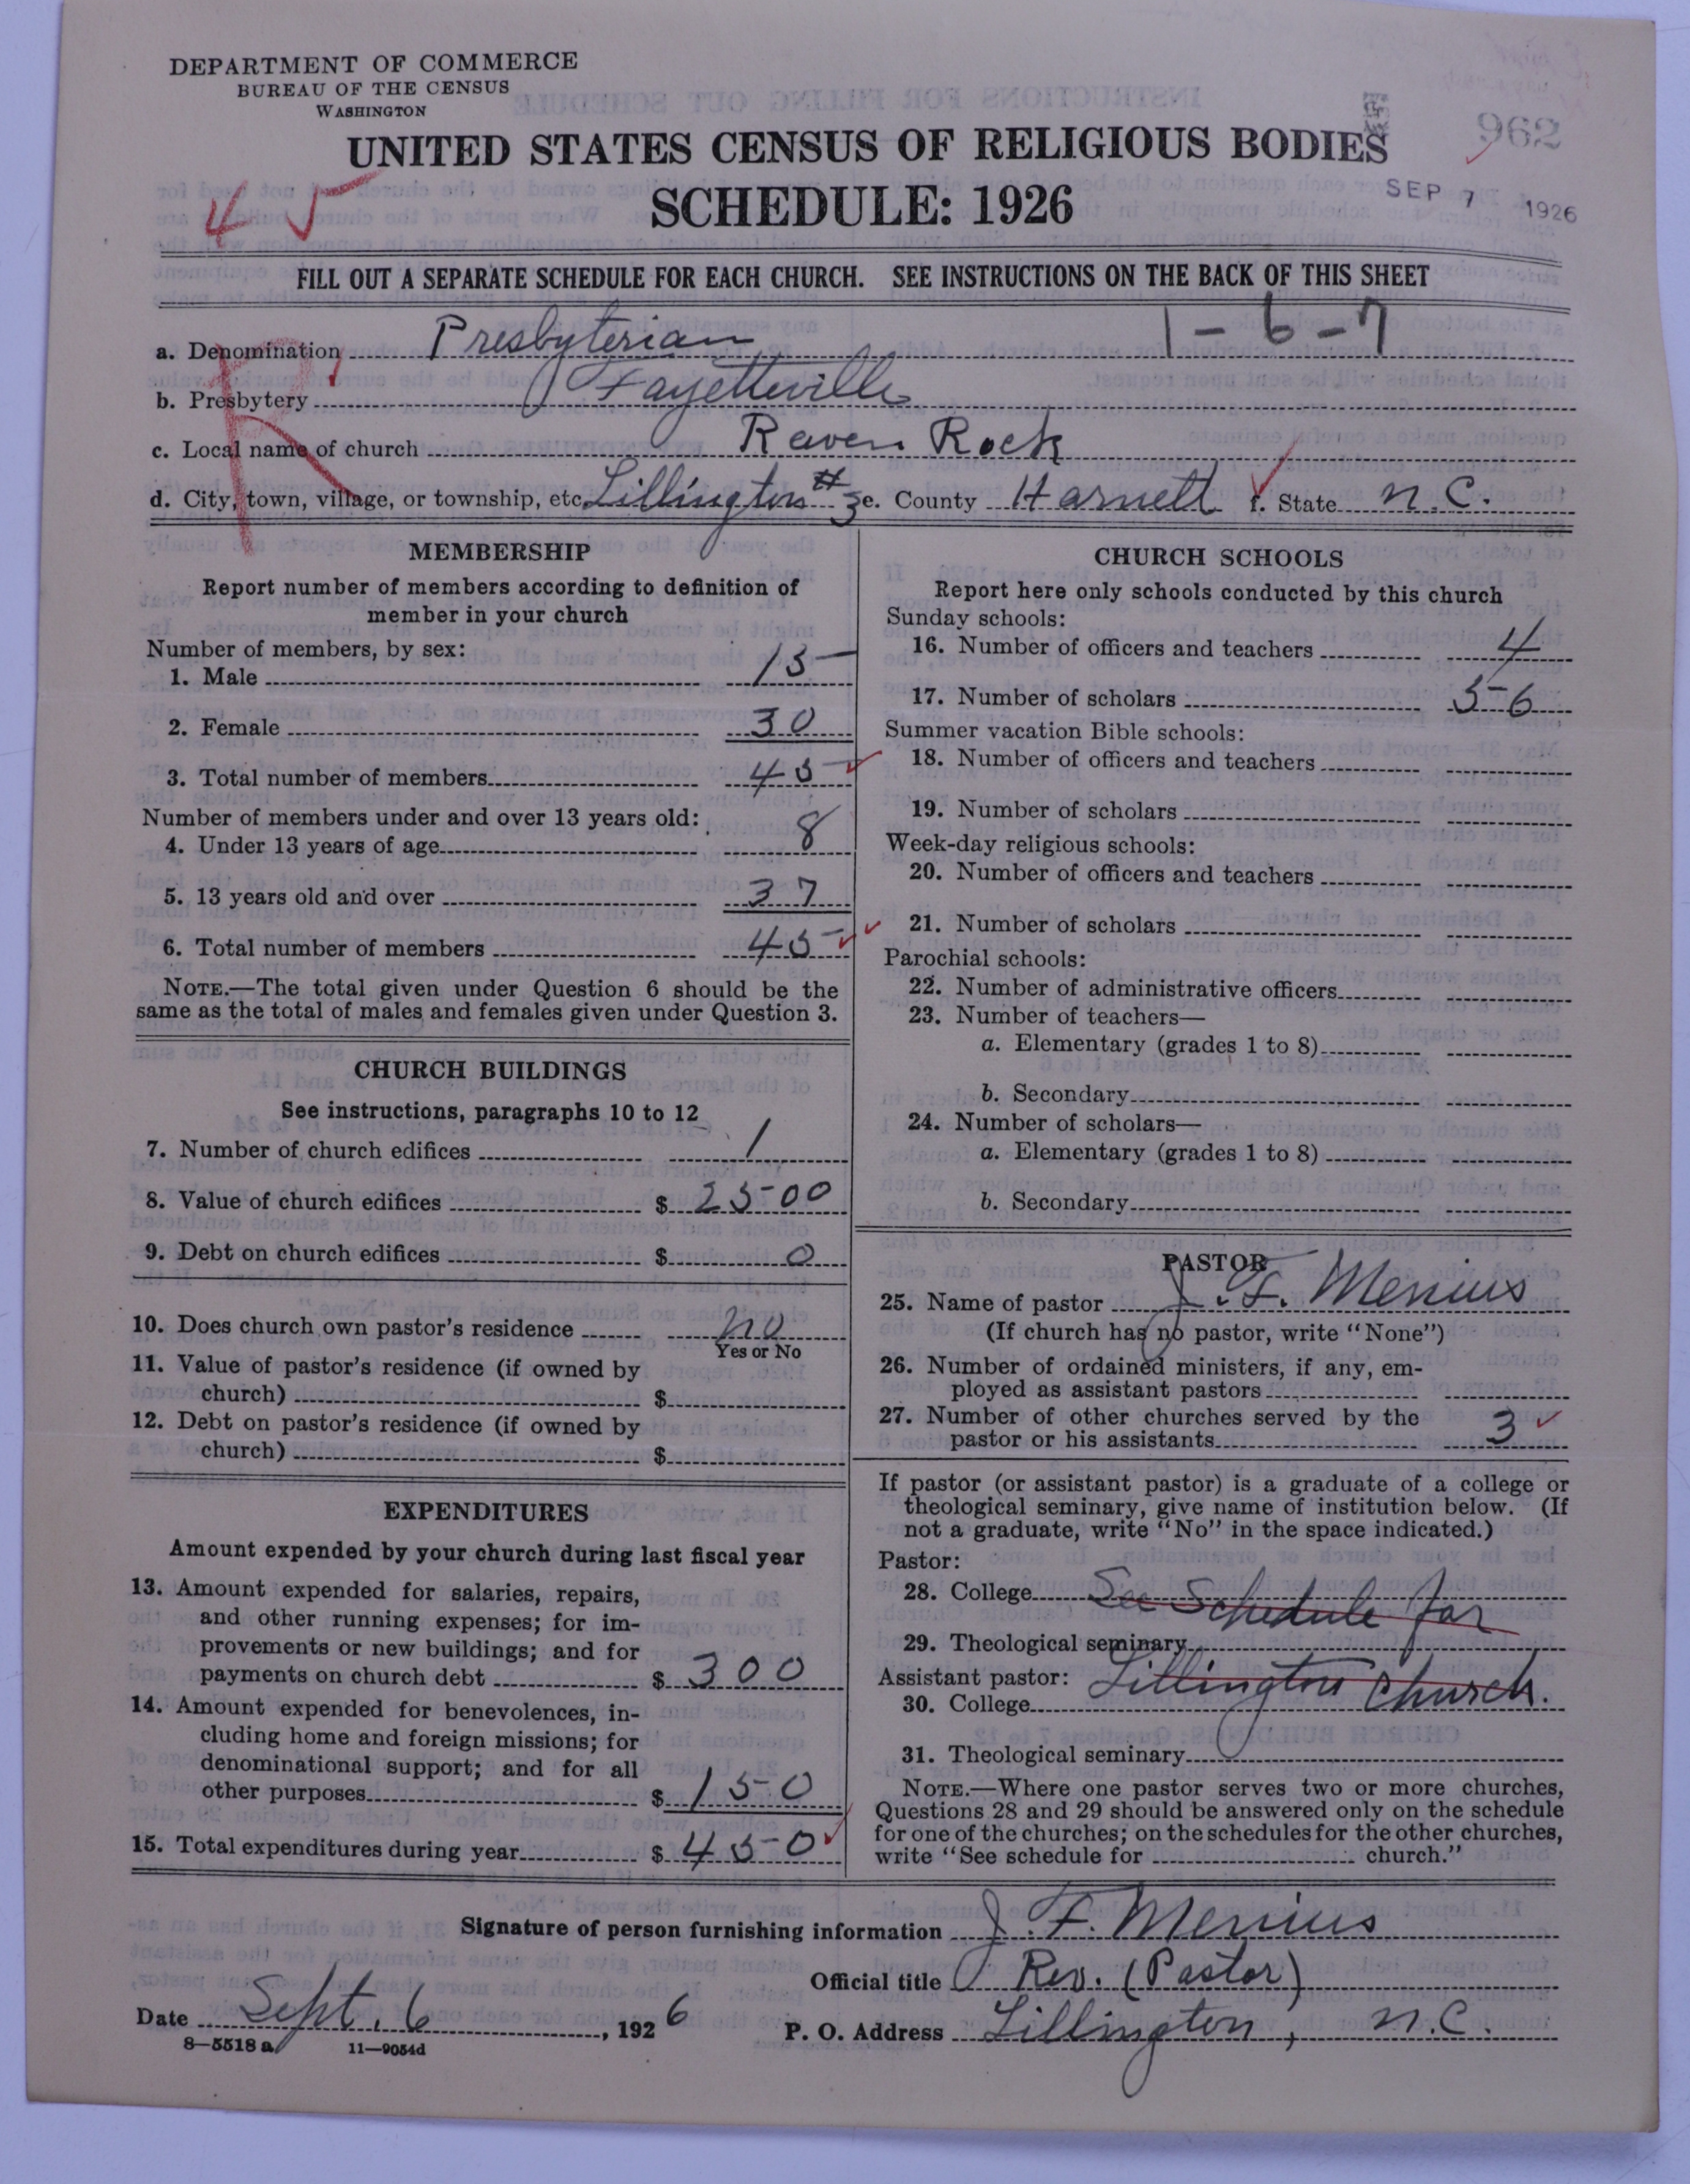 DEPARTMENT OF COMMERCE
BUREAU OF THE CENSUS
WASHINGTON
962
UNITED STATES CENSUS OF RELIGIOUS BODIES
SCHEDULE: 1926
SEP 7 1926
45
FILL OUT A SEPARATE SCHEDULE FOR EACH CHURCH. SEE INSTRUCTIONS ON THE BACK OF THIS SHEET
1-6-7
a. Denomination Presbyterian
b. Presbytery Fayetteville
c. Local name of church Raven Rock
d. City, town, village, or township, etc. Lillington #3 e. County Harnett f. State N.C.
R
MEMBERSHIP
Report number of members according to definition of
member in your church
Number of members, by sex:
1. Male 15
2. Female 30
3. Total number of members 45
Number of members under and over 13 years old:
4. Under 13 years of age 8
5. 13 years old and over 37
6. Total number of members 45
NOTE.—The total given under Question 6 should be the
same as the total of males and females given under Question 3.
CHURCH BUILDINGS
See instructions, paragraphs 10 to 12
7. Number of church edifices 1
8. Value of church edifices $ 2500
9. Debt on church edifices $ 0
10. Does church own pastor's residence no
Yes or No
11. Value of pastor's residence (if owned by
church) $
12. Debt on pastor's residence (if owned by
church) $
EXPENDITURES
Amount expended by your church during last fiscal year
13. Amount expended for salaries, repairs,
and other running expenses; for im-
provements or new buildings; and for
payments on church debt $ 300
14. Amount expended for benevolences, in-
cluding home and foreign missions; for
denominational support; and for all
other purposes $ 150
15. Total expenditures during year $ 450
CHURCH SCHOOLS
Report here only schools conducted by this church
Sunday schools:
16. Number of officers and teachers 4
17. Number of scholars 56
Summer vacation Bible schools:
18. Number of officers and teachers
19. Number of scholars
Week-day religious schools:
20. Number of officers and teachers
21. Number of scholars
Parochial schools:
22. Number of administrative officers
23. Number of teachers—
a. Elementary (grades 1 to 8)
b. Secondary
24. Number of scholars—
a. Elementary (grades 1 to 8)
b. Secondary
PASTOR
25. Name of pastor J. F. Menius
(If church has no pastor, write "None")
26. Number of ordained ministers, if any, em-
ployed as assistant pastors
27. Number of other churches served by the
pastor or his assistants 3
If pastor (or assistant pastor) is a graduate of a college or
theological seminary, give name of institution below. (If
not a graduate, write "No" in the space indicated.)
Pastor:
28. College See Schedule for
29. Theological seminary
Assistant pastor: Lillington Church.
30. College
31. Theological seminary
NOTE.—Where one pastor serves two or more churches,
Questions 28 and 29 should be answered only on the schedule
for one of the churches; on the schedules for the other churches,
write "See schedule for church."
Signature of person furnishing information J. F. Menius
Official title Rev. (Pastor)
Date Sept. 6, 1926
P. O. Address Lillington, N.C.
8—5518 a 11—9054d